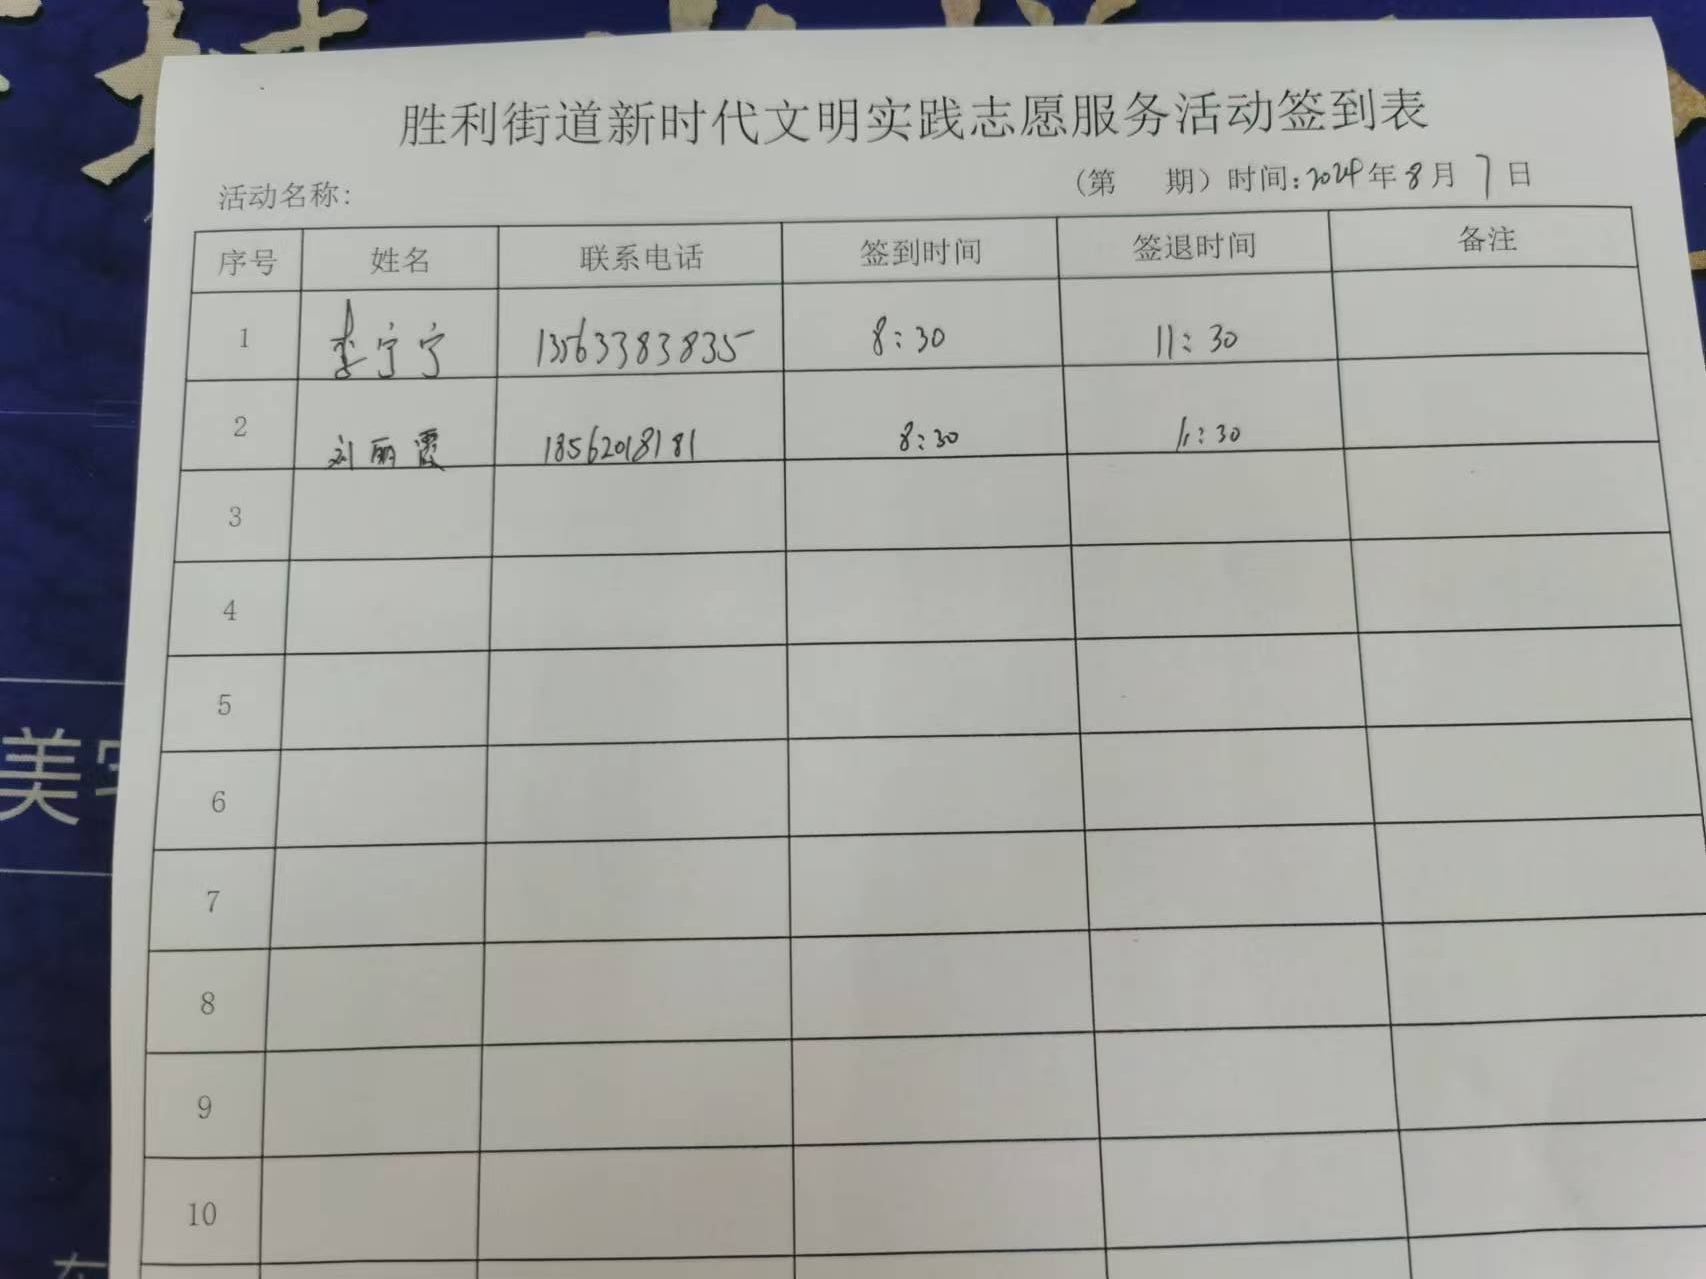 胜利街道新时代文明实践志愿服务活动签到表
活动名称: (第 期) 时间:2024年8月7日
序号 姓名 联系电话 签到时间 签退时间 备注
1 李宁宁 13563383835 8:30 11:30
2 刘丽霞 18562018181 8:30 11:30
3
4
5
6
7
8
9
10
美